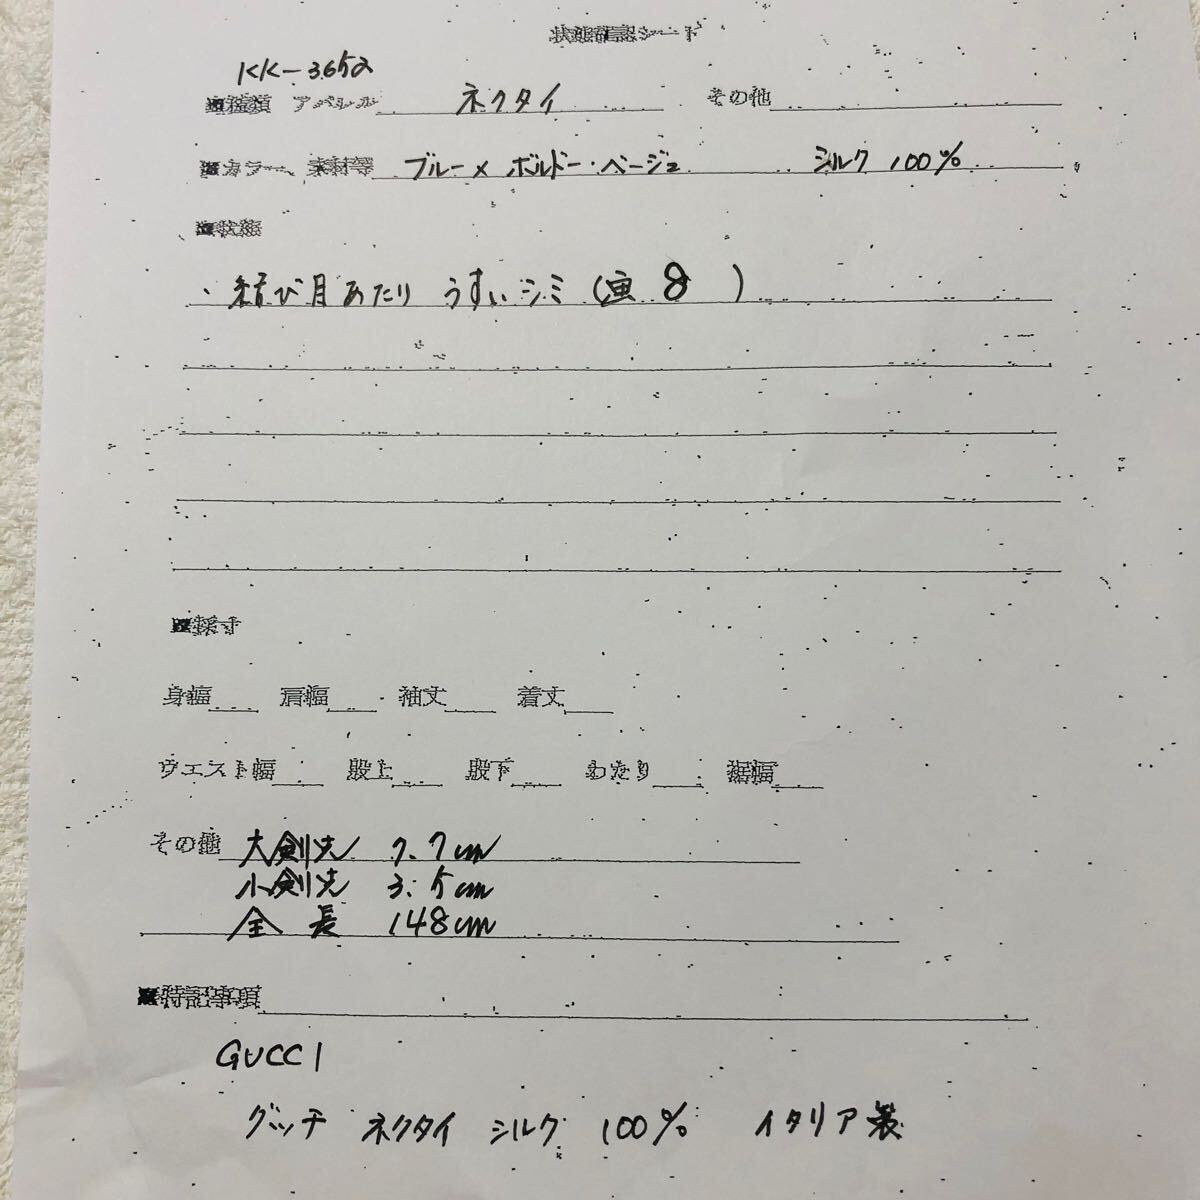 状態確認シート
KK-3652
■種類 アパレル ネクタイ その他
■カラー、素材等 ブルー×ボルドー・ベージュ シルク 100%
■状態
・結び目あたり うすいシミ (画 8 )
■採寸
身幅 肩幅 袖丈 着丈
ウエスト幅 股上 股下 わたり 裾幅
その他 大剣先 7.7cm
小剣先 3.5cm
全長 148cm
■特記事項
GUCCI
グッチ ネクタイ シルク 100% イタリア製